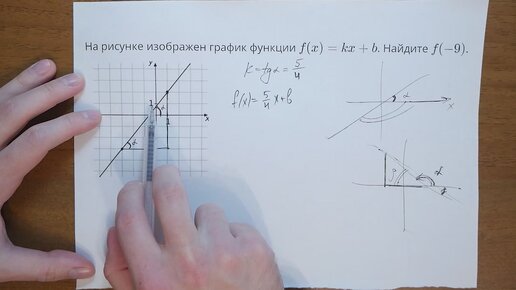 На рисунке изображен график функции f(x) = kx + b. Найдите f(−9).
y
k = tg α = 5/4
1
f(x) = 5/4 x + b
α
x
α
x
1
α
β
α